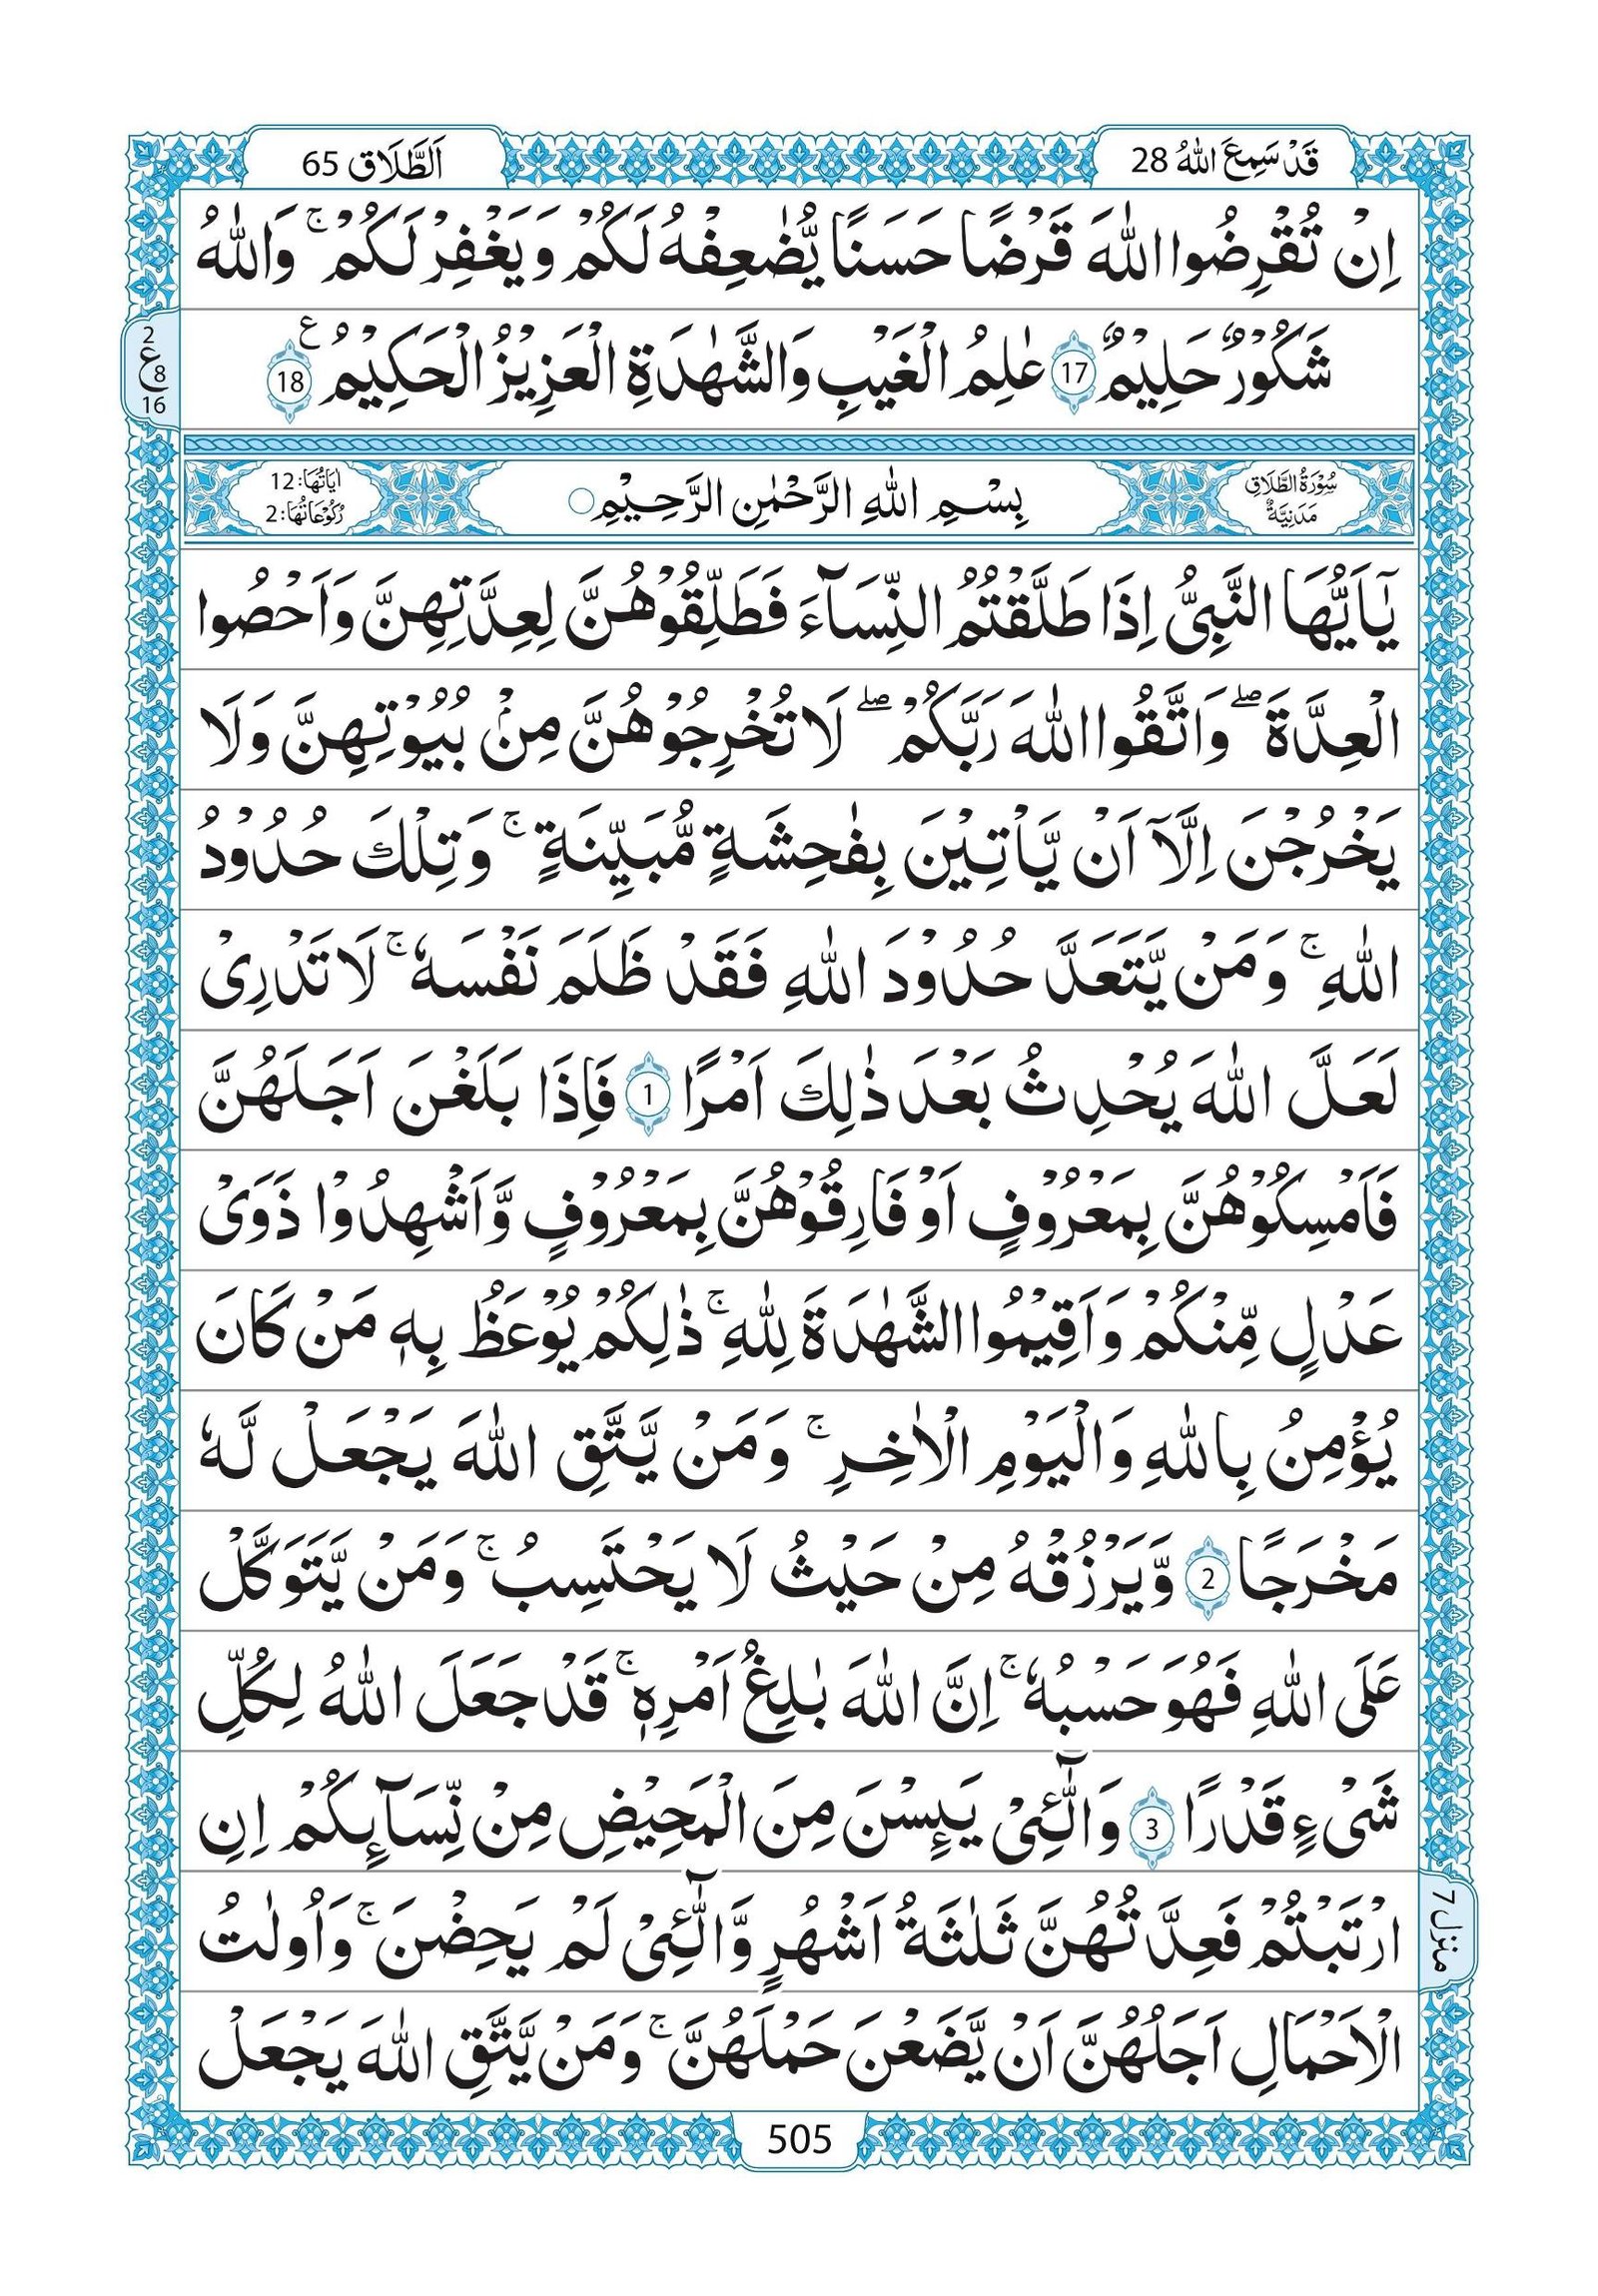 قَدْ سَمِعَ اللّٰهُ 28
اَلطَّلَاق 65
اِنْ تُقْرِضُوا اللّٰهَ قَرْضًا حَسَنًا يُّضٰعِفْهُ لَكُمْ وَ يَغْفِرْ لَكُمْ ۚ وَاللّٰهُ
شَكُوْرٌ حَلِيْمٌ 17 عٰلِمُ الْغَيْبِ وَالشَّهٰدَةِ الْعَزِيْزُ الْحَكِيْمُ ع 18
2
ع 8
16
سُوْرَةُ الطَّلَاقِ
مَدَنِيَّةٌ
بِسْمِ اللّٰهِ الرَّحْمٰنِ الرَّحِيْمِ ○
اٰيَاتُهَا: 12
رُكُوْعَاتُهَا: 2
يٰۤاَيُّهَا النَّبِىُّ اِذَا طَلَّقْتُمُ النِّسَآءَ فَطَلِّقُوْهُنَّ لِعِدَّتِهِنَّ وَ اَحْصُوا
الْعِدَّةَ ۖ وَ اتَّقُوا اللّٰهَ رَبَّكُمْ ۖ لَا تُخْرِجُوْهُنَّ مِنْۢ بُيُوْتِهِنَّ وَ لَا
يَخْرُجْنَ اِلَّاۤ اَنْ يَّاْتِيْنَ بِفٰحِشَةٍ مُّبَيِّنَةٍ ۚ وَ تِلْكَ حُدُوْدُ
اللّٰهِ ۚ وَ مَنْ يَّتَعَدَّ حُدُوْدَ اللّٰهِ فَقَدْ ظَلَمَ نَفْسَهٗ ۚ لَا تَدْرِىْ
لَعَلَّ اللّٰهَ يُحْدِثُ بَعْدَ ذٰلِكَ اَمْرًا 1 فَاِذَا بَلَغْنَ اَجَلَهُنَّ
فَاَمْسِكُوْهُنَّ بِمَعْرُوْفٍ اَوْ فَارِقُوْهُنَّ بِمَعْرُوْفٍ وَّ اَشْهِدُوْا ذَوَىْ
عَدْلٍ مِّنْكُمْ وَ اَقِيْمُوا الشَّهٰدَةَ لِلّٰهِ ۚ ذٰلِكُمْ يُوْعَظُ بِهٖ مَنْ كَانَ
يُؤْمِنُ بِاللّٰهِ وَ الْيَوْمِ الْاٰخِرِ ۚ وَ مَنْ يَّتَّقِ اللّٰهَ يَجْعَلْ لَّهٗ
مَخْرَجًا 2 وَّ يَرْزُقْهُ مِنْ حَيْثُ لَا يَحْتَسِبُ ۚ وَ مَنْ يَّتَوَكَّلْ
عَلَى اللّٰهِ فَهُوَ حَسْبُهٗ ۚ اِنَّ اللّٰهَ بٰلِغُ اَمْرِهٖ ۚ قَدْ جَعَلَ اللّٰهُ لِكُلِّ
شَىْءٍ قَدْرًا 3 وَ الّٰٓـئِىْ يَئِسْنَ مِنَ الْمَحِيْضِ مِنْ نِّسَآئِكُمْ اِنِ
ارْتَبْتُمْ فَعِدَّتُهُنَّ ثَلٰثَةُ اَشْهُرٍ وَّ الّٰٓـئِىْ لَمْ يَحِضْنَ ۚ وَ اُولٰتُ
الْاَحْمَالِ اَجَلُهُنَّ اَنْ يَّضَعْنَ حَمْلَهُنَّ ۚ وَ مَنْ يَّتَّقِ اللّٰهَ يَجْعَلْ
منزل 7
505